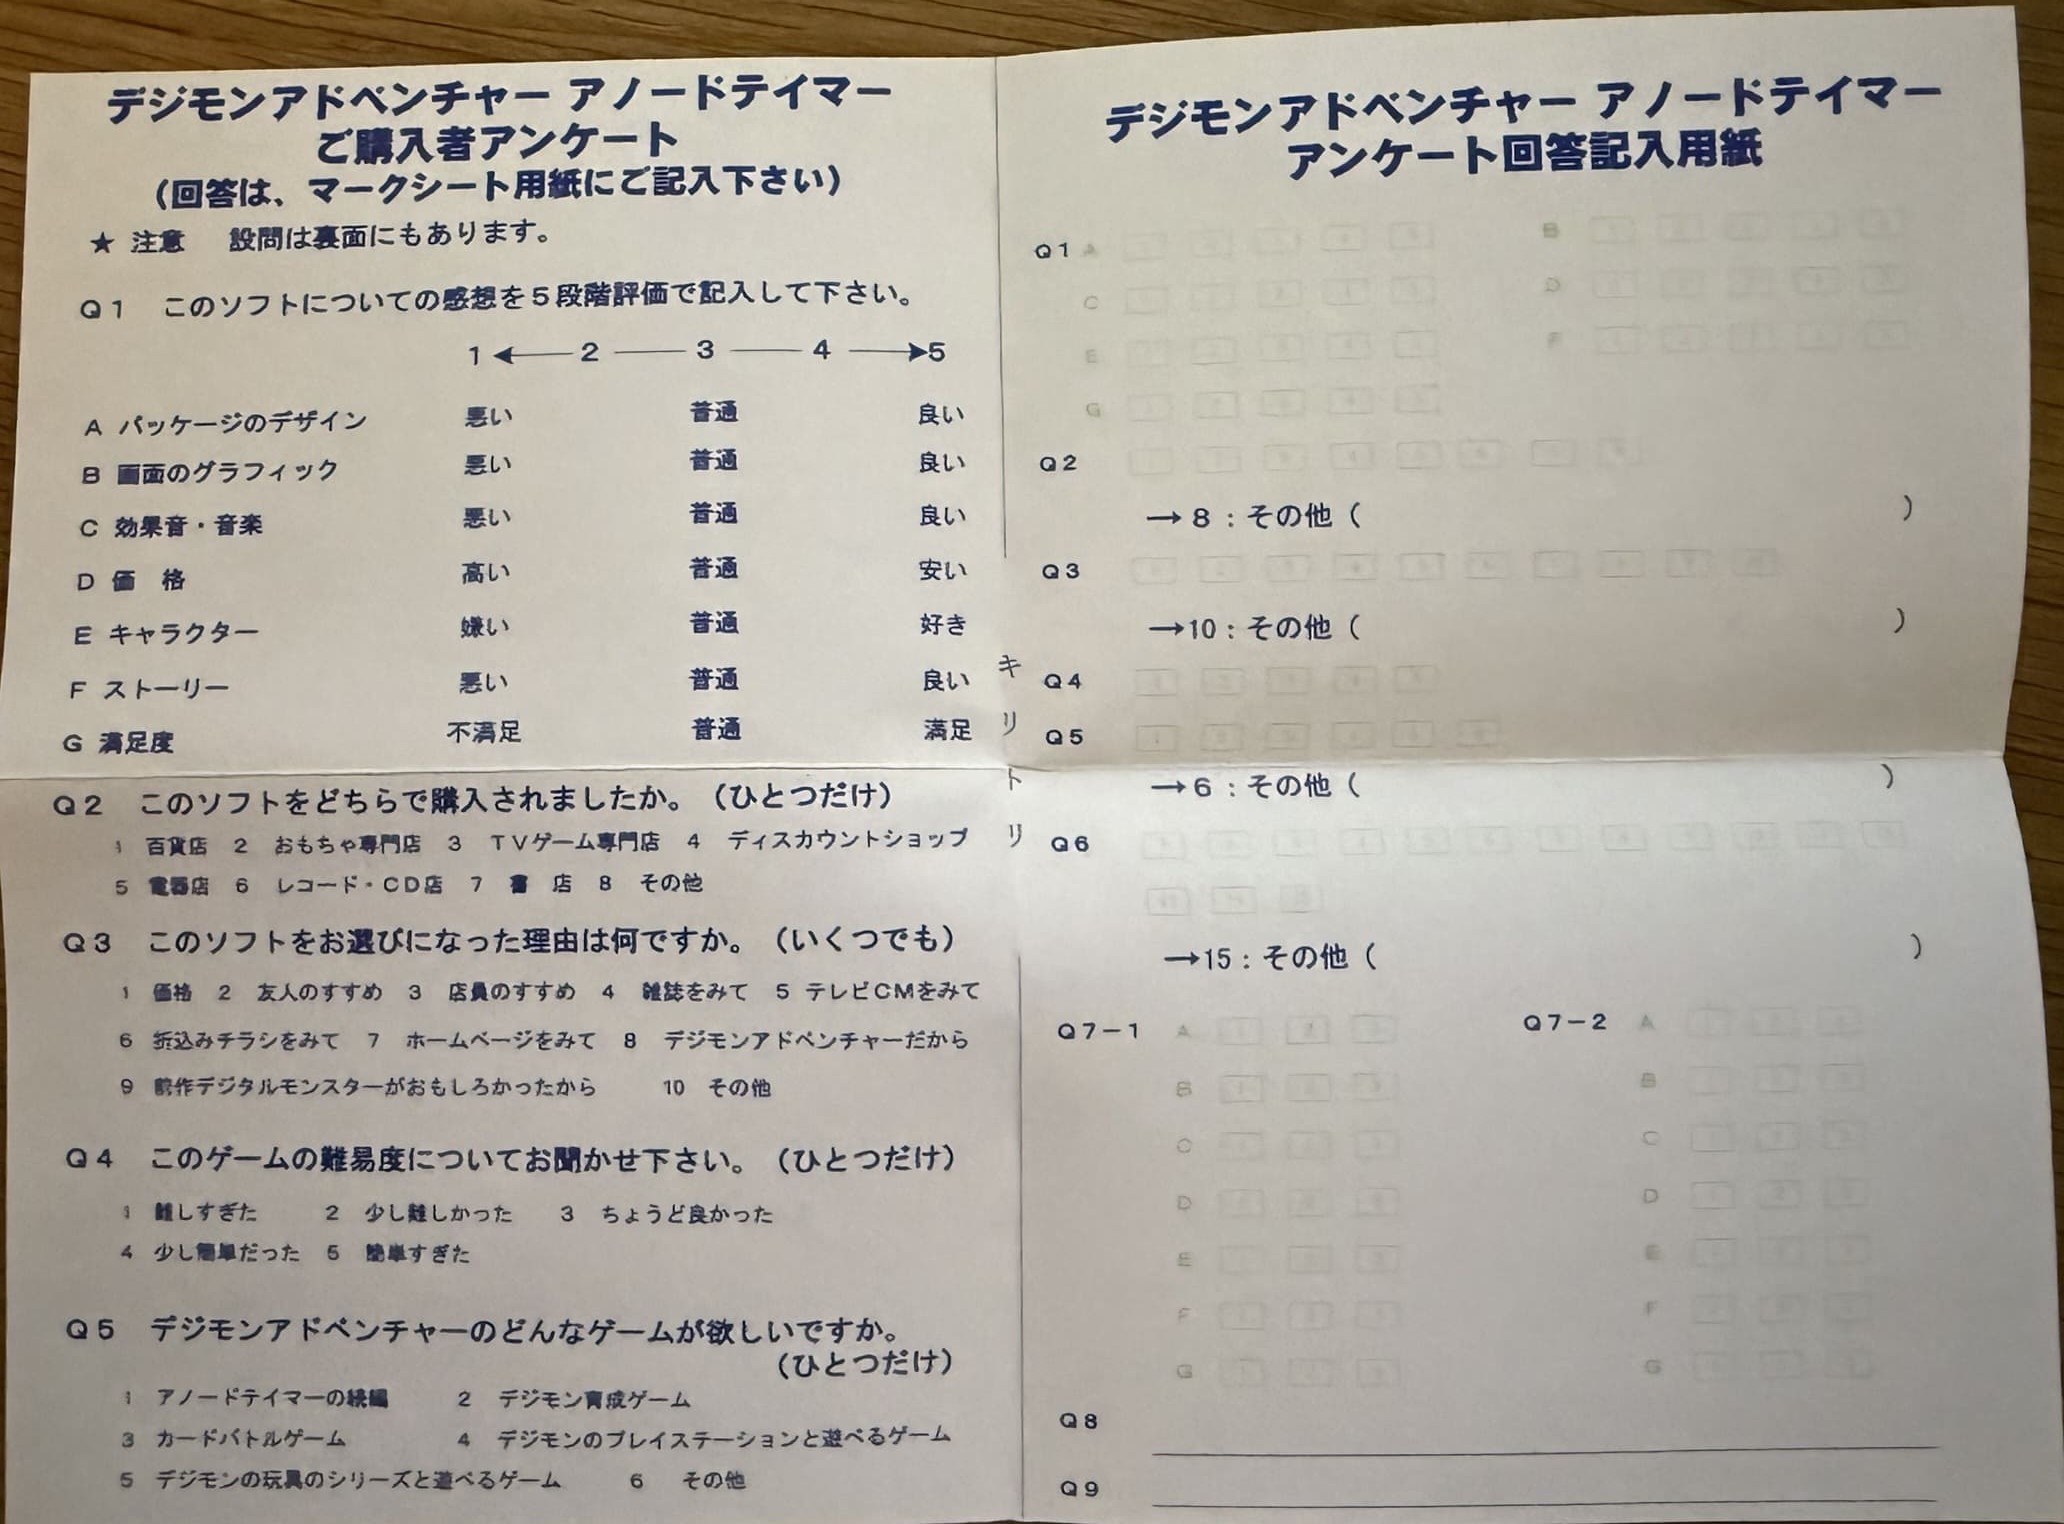 デジモンアドベンチャー アノードテイマー
ご購入者アンケート
（回答は、マークシート用紙にご記入下さい）
★ 注意　設問は裏面にもあります。
Q1　このソフトについての感想を5段階評価で記入して下さい。
1 ←── 2 ── 3 ── 4 ──→ 5
A パッケージのデザイン　悪い　普通　良い
B 画面のグラフィック　悪い　普通　良い
C 効果音・音楽　悪い　普通　良い
D 価　格　高い　普通　安い
E キャラクター　嫌い　普通　好き
F ストーリー　悪い　普通　良い
G 満足度　不満足　普通　満足
Q2　このソフトをどちらで購入されましたか。（ひとつだけ）
1　百貨店　2　おもちゃ専門店　3　TVゲーム専門店　4　ディスカウントショップ
5　電器店　6　レコード・CD店　7　書　店　8　その他
Q3　このソフトをお選びになった理由は何ですか。（いくつでも）
1　価格　2　友人のすすめ　3　店員のすすめ　4　雑誌をみて　5　テレビCMをみて
6　折込みチラシをみて　7　ホームページをみて　8　デジモンアドベンチャーだから
9　前作デジタルモンスターがおもしろかったから　10　その他
Q4　このゲームの難易度についてお聞かせ下さい。（ひとつだけ）
1　難しすぎた　2　少し難しかった　3　ちょうど良かった
4　少し簡単だった　5　簡単すぎた
Q5　デジモンアドベンチャーのどんなゲームが欲しいですか。
（ひとつだけ）
1　アノードテイマーの続編　2　デジモン育成ゲーム
3　カードバトルゲーム　4　デジモンのプレイステーションと遊べるゲーム
5　デジモンの玩具のシリーズと遊べるゲーム　6　その他
キリトリ
デジモンアドベンチャー アノードテイマー
アンケート回答記入用紙
Q1 A　B
C　D
E　F
G
Q2
→8：その他（　）
Q3
→10：その他（　）
Q4
Q5
→6：その他（　）
Q6
→15：その他（　）
Q7−1 A　Q7−2 A
B　B
C　C
D　D
E　E
F　F
G　G
Q8
Q9